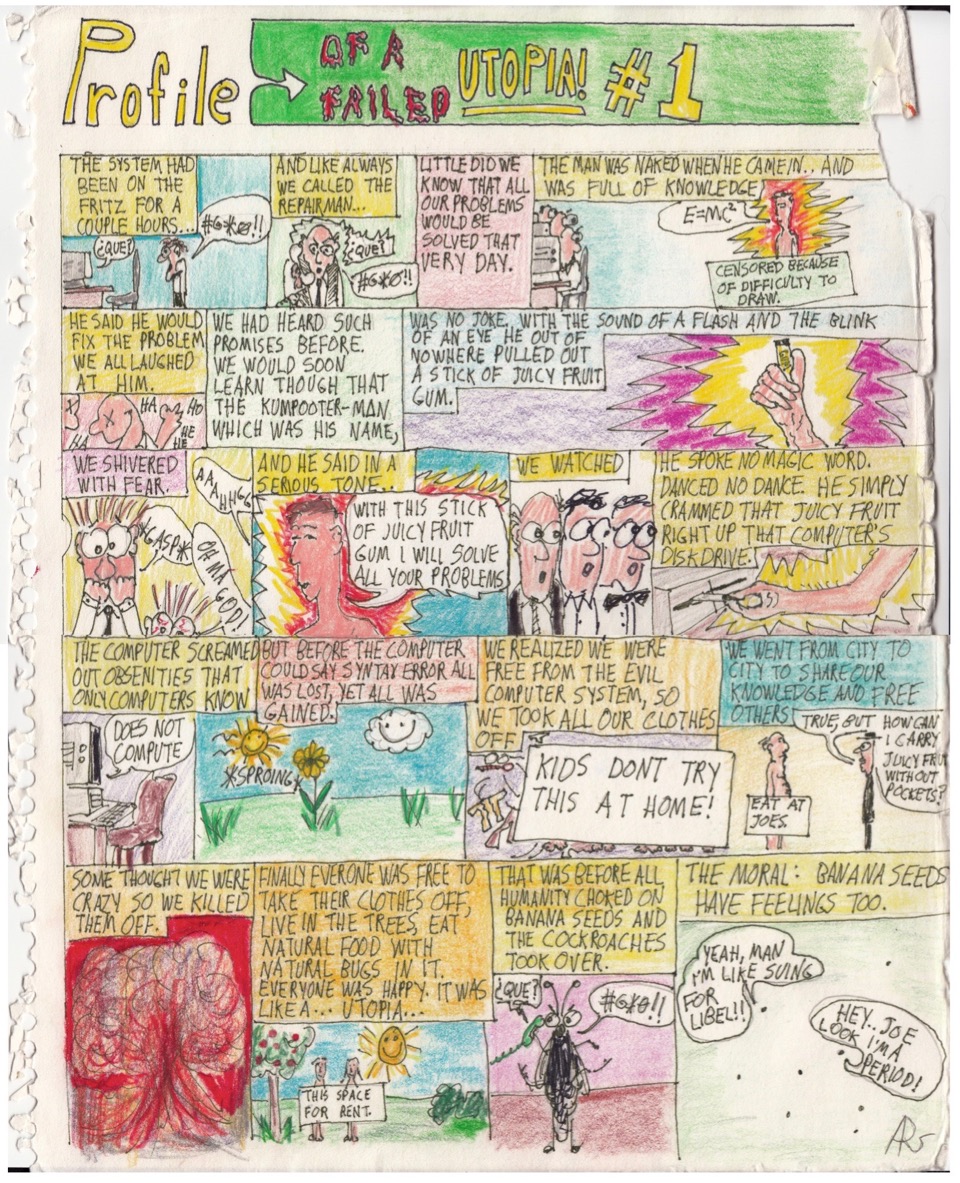 Profile
OF A
FAILED
UTOPIA!
#1
THE SYSTEM HAD
BEEN ON THE
FRITZ FOR A
COUPLE HOURS...
¿QUE?
#G*@!!
AND LIKE ALWAYS
WE CALLED THE
REPAIRMAN...
¿QUE?
#G*@!!
LITTLE DID WE
KNOW THAT ALL
OUR PROBLEMS
WOULD BE
SOLVED THAT
VERY DAY.
THE MAN WAS NAKED WHEN HE CAME IN.. AND
WAS FULL OF KNOWLEDGE
E=MC²
CENSORED BECAUSE
OF DIFFICULTY TO
DRAW.
HE SAID HE WOULD
FIX THE PROBLEM
WE ALL LAUGHED
AT HIM.
HA
HA
HO
HE
HE
WE HAD HEARD SUCH
PROMISES BEFORE.
WE WOULD SOON
LEARN THOUGH THAT
THE KUMPOOTER-MAN,
WHICH WAS HIS NAME,
WAS NO JOKE, WITH THE SOUND OF A FLASH AND THE BLINK
OF AN EYE HE OUT OF
NOWHERE PULLED OUT
A STICK OF JUICY FRUIT
GUM.
WE SHIVERED
WITH FEAR.
AAAHHGG
*GASP*
OH MA
GOD!
AND HE SAID IN A
SERIOUS TONE..
WITH THIS STICK
OF JUICY FRUIT
GUM I WILL SOLVE
ALL YOUR PROBLEMS
WE WATCHED
HE SPOKE NO MAGIC WORD.
DANCED NO DANCE. HE SIMPLY
CRAMMED THAT JUICY FRUIT
RIGHT UP THAT COMPUTER'S
DISKDRIVE.
THE COMPUTER SCREAMED
OUT OBSENITIES THAT
ONLY COMPUTERS KNOW
DOES NOT
COMPUTE
BUT BEFORE THE COMPUTER
COULD SAY SYNTAY ERROR ALL
WAS LOST, YET ALL WAS
GAINED.
*SPROING*
WE REALIZED WE WERE
FREE FROM THE EVIL
COMPUTER SYSTEM, SO
WE TOOK ALL OUR CLOTHES
OFF
KIDS DONT TRY
THIS AT HOME!
WE WENT FROM CITY TO
CITY TO SHARE OUR
KNOWLEDGE AND FREE
OTHERS
TRUE, BUT HOW CAN
I CARRY
JUICY FRUI
WITHOUT
POCKETS?
EAT AT
JOES
SOME THOUGHT WE WERE
CRAZY SO WE KILLED
THEM OFF.
FINALLY EVERONE WAS FREE TO
TAKE THEIR CLOTHES OFF,
LIVE IN THE TREES, EAT
NATURAL FOOD WITH
NATURAL BUGS IN IT.
EVERYONE WAS HAPPY. IT WAS
LIKE A... UTOPIA...
THIS SPACE
FOR RENT.
THAT WAS BEFORE ALL
HUMANITY CHOKED ON
BANANA SEEDS AND
THE COCKROACHES
TOOK OVER.
¿QUE?
#G*@!!
THE MORAL: BANANA SEEDS
HAVE FEELINGS TOO.
YEAH, MAN
I'M LIKE SUING
FOR
LIBEL!!
HEY.. JOE
LOOK I'M A
PERIOD!